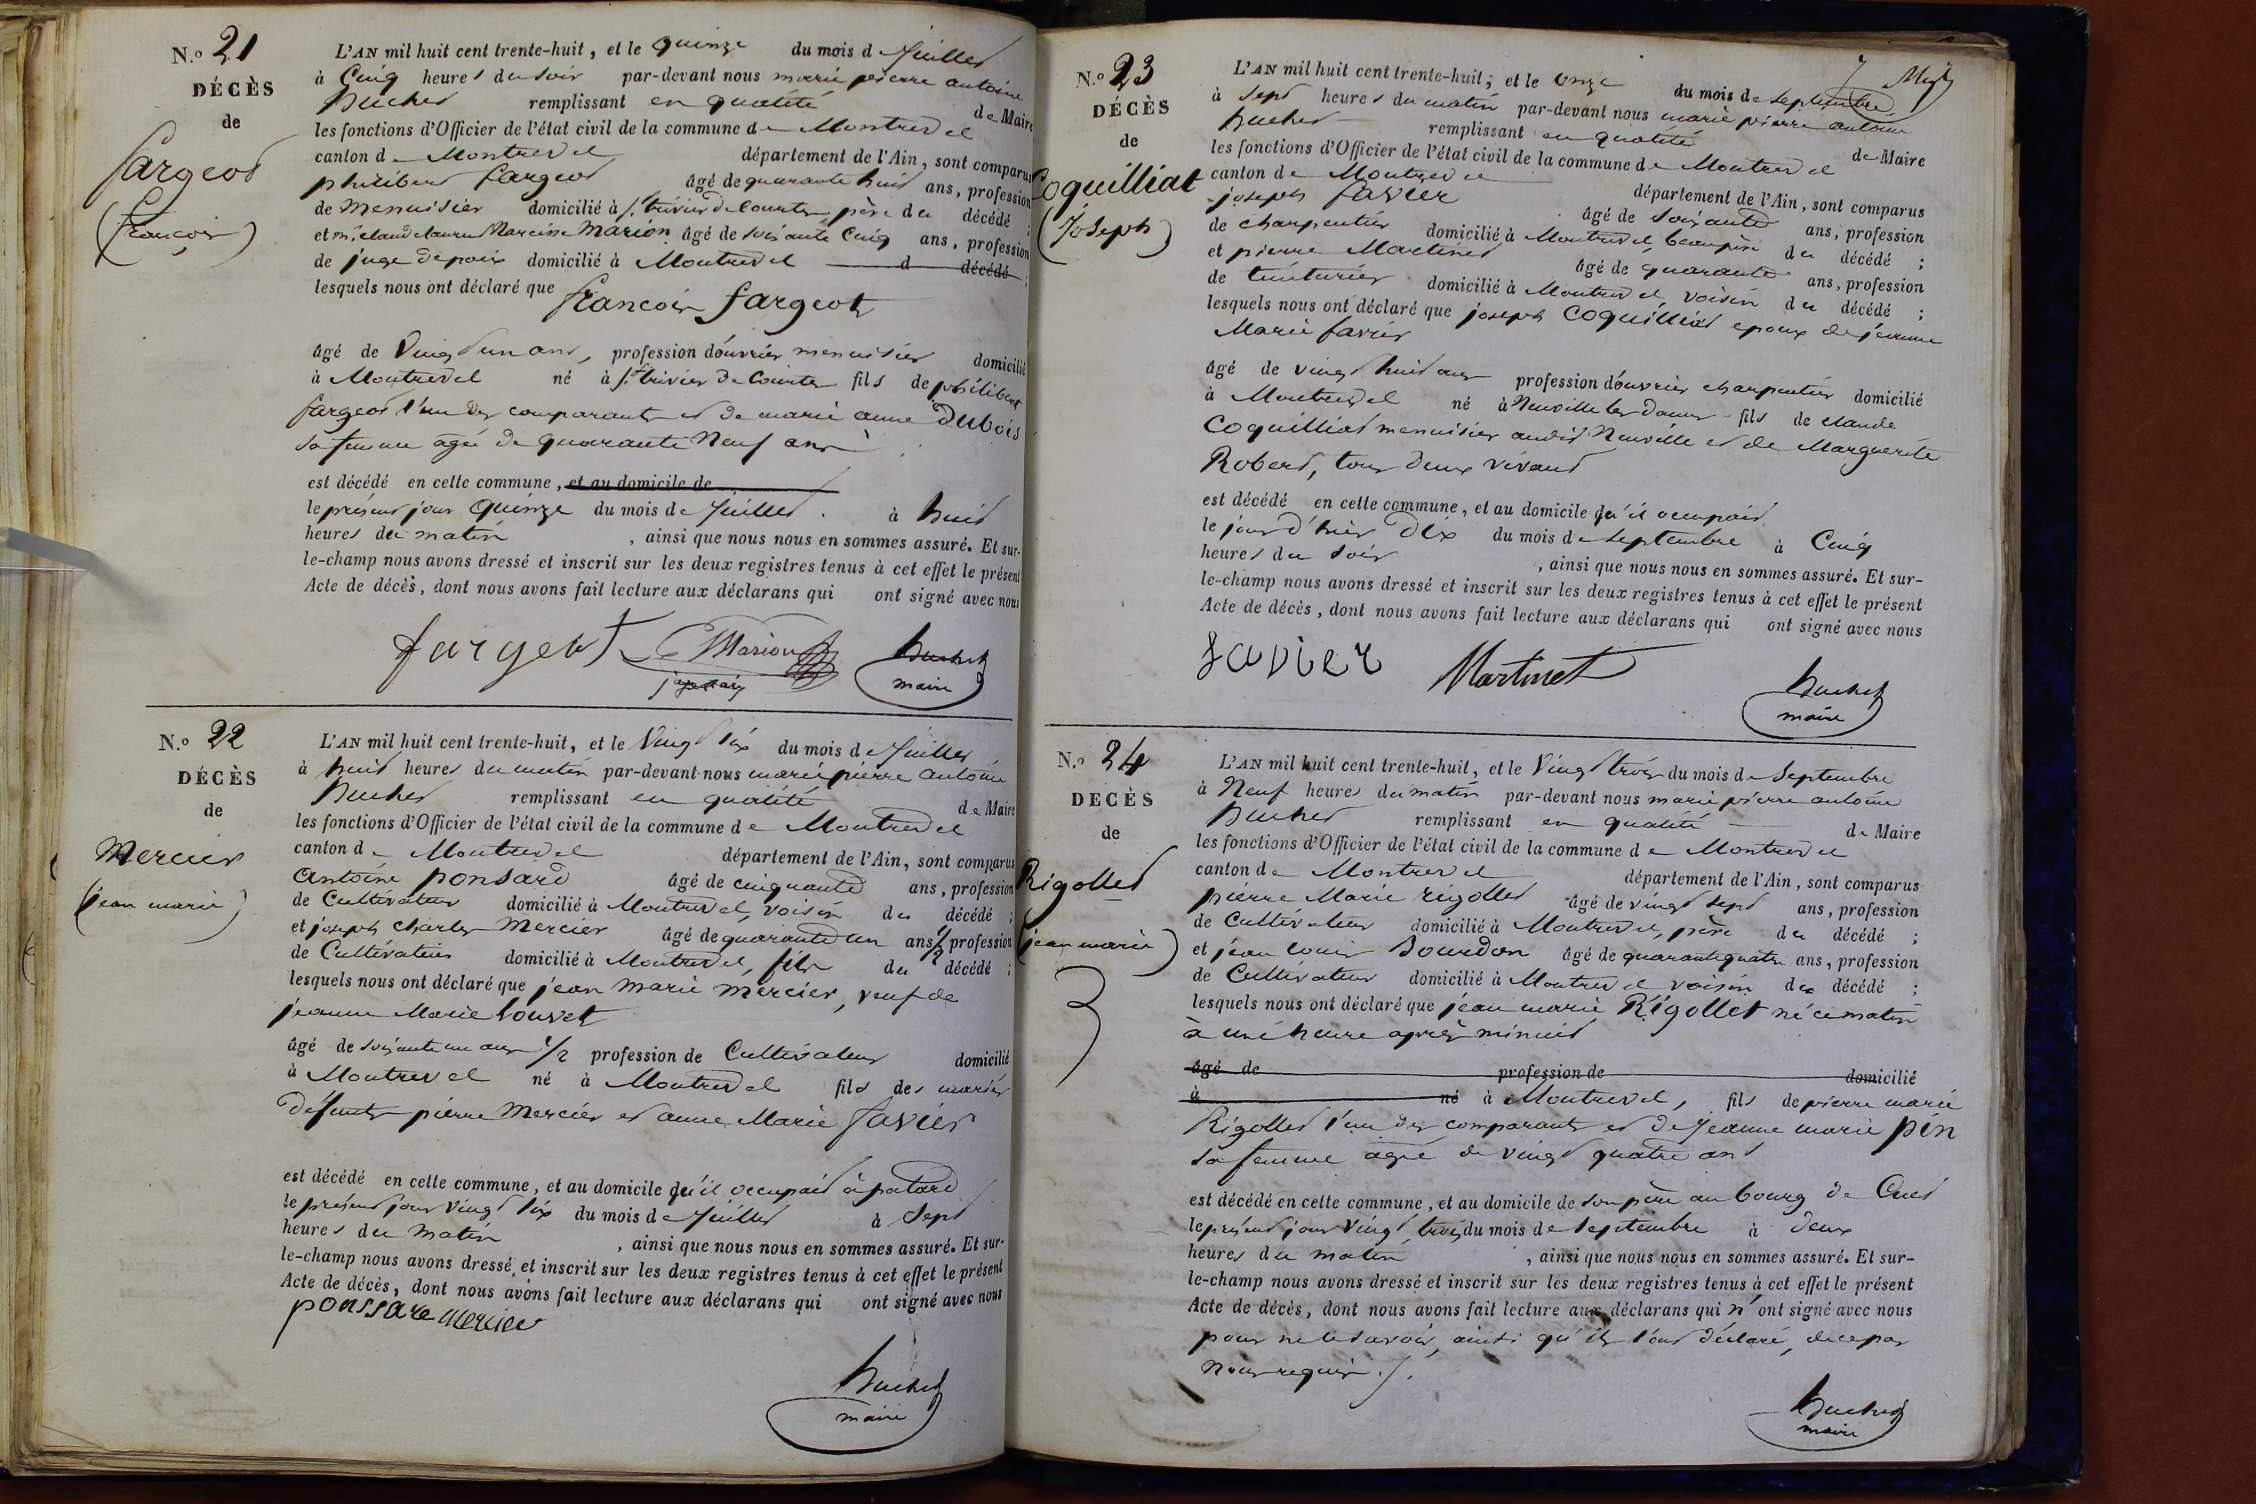 N.º 21
DÉCÈS
de
fargeot
(françois)
L'AN mil huit cent trente-huit, et le quinze du mois de juillet
à Cinq heures du soir par-devant nous marie pierre antoine
huchet remplissant en qualité de Maire
les fonctions d'Officier de l'état civil de la commune de Montrevel
canton de Montrevel département de l'Ain, sont comparus
philibert fargeot âgé de quarante huit ans, profession
de menuisier domicilié à St. trivier de Courtes père du décédé ;
et mr. claude laurent Narcisse Marion âgé de soixante Cinq ans, profession
de juge de paix domicilié à Montrevel d décédé ;
lesquels nous ont déclaré que françois fargeot
âgé de vingt un ans, profession d'ouvrier menuisier domicilié
à Montrevel né à St. trivier de Courtes fils de philibert
fargeot l'un des comparants et de marie anne Dubois
sa femme agée de quarante Neuf ans
est décédé en cette commune, et au domicile de
le présent jour quinze du mois de juillet à huit
heures du matin, ainsi que nous nous en sommes assuré. Et sur-
le-champ nous avons dressé et inscrit sur les deux registres tenus à cet effet le présent
Acte de décès, dont nous avons fait lecture aux déclarans qui ont signé avec nous
fargeot Marion huchet
maire
N.º 22
DÉCÈS
de
Mercier
(jean marie)
L'AN mil huit cent trente-huit, et le Vingt six du mois de juillet
à huit heures du matin par-devant nous marie pierre antoine
huchet remplissant en qualité de Maire
les fonctions d'Officier de l'état civil de la commune de Montrevel
canton de Montrevel département de l'Ain, sont comparus
antoine ponsard âgé de cinquante ans, profession
de Cultivateur domicilié à Montrevel, voisin du décédé ;
et joseph charles Mercier âgé de quarante un ans 1/2 profession
de Cultivateur domicilié à Montrevel, fils du décédé ;
lesquels nous ont déclaré que jean marie mercier, veuf de
jeanne Marie Louvet
âgé de soixante un ans 1/2 profession de Cultivateur domicilié
à Montrevel né à Montrevel fils des mariés
defunts pierre Mercier et anne Marie favier
est décédé en cette commune, et au domicile qu'il occupait à
le présent jour vingt six du mois de juillet à sept
heures du matin, ainsi que nous nous en sommes assuré. Et sur-
le-champ nous avons dressé et inscrit sur les deux registres tenus à cet effet le présent
Acte de décès, dont nous avons fait lecture aux déclarans qui ont signé avec nous
ponssare mercier
huchet
maire
N.º 23
DÉCÈS
de
Coquilliat
(Joseph)
L'AN mil huit cent trente-huit, et le onze du mois de septembre
à sept heures du matin par-devant nous marie pierre antoine
huchet remplissant en qualité de Maire
les fonctions d'Officier de l'état civil de la commune de Montrevel
canton de Montrevel département de l'Ain, sont comparus
joseph favier âgé de soixante ans, profession
de charpentier domicilié à Montrevel, beaupère du décédé ;
et pierre Martinet âgé de quarante ans, profession
de teinturier domicilié à Montrevel, voisin du décédé ;
lesquels nous ont déclaré que joseph Coquilliat epoux de jeanne
Marie favier
âgé de vingt huit ans profession d'ouvrier charpentier domicilié
à Montrevel né à Neuville les dames fils de claude
Coquilliat menuisier audit Neuville et de Marguerite
Robert, tous deux vivant
est décédé en cette commune, et au domicile qu'il occupait
le jour d'hier dix du mois de septembre à Cinq
heures du soir, ainsi que nous nous en sommes assuré. Et sur-
le-champ nous avons dressé et inscrit sur les deux registres tenus à cet effet le présent
Acte de décès, dont nous avons fait lecture aux déclarans qui ont signé avec nous
favier Martinet huchet
maire
N.º 24
DÉCÈS
de
Rigollet
(jean marie)
L'AN mil huit cent trente-huit, et le Vingt trois du mois de Septembre
à Neuf heures du matin par-devant nous marie pierre antoine
huchet remplissant en qualité de Maire
les fonctions d'Officier de l'état civil de la commune de Montrevel
canton de Montrevel département de l'Ain, sont comparus
pierre Marie rigollet âgé de vingt sept ans, profession
de Cultivateur domicilié à Montrevel, père du décédé ;
et jean louis Sourdon âgé de quarante quatre ans, profession
de Cultivateur domicilié à Montrevel voisin du décédé ;
lesquels nous ont déclaré que jean marie Rigollet né ce matin
à une heure après minuit
âgé de profession de domicilié
à né à Montrevel, fils de pierre marie
Rigollet l'un des comparants et de jeanne marie pin
sa femme agée de vingt quatre ans
est décédé en cette commune, et au domicile de son père au bourg de Cuet
le présent jour vingt trois du mois de septembre à deux
heures du matin, ainsi que nous nous en sommes assuré. Et sur-
le-champ nous avons dressé et inscrit sur les deux registres tenus à cet effet le présent
Acte de décès, dont nous avons fait lecture aux déclarans qui n'ont signé avec nous
pour ne le savoir, ainsi qu'ils l'ont déclaré, de ce par
nous requis ./.
huchet
maire